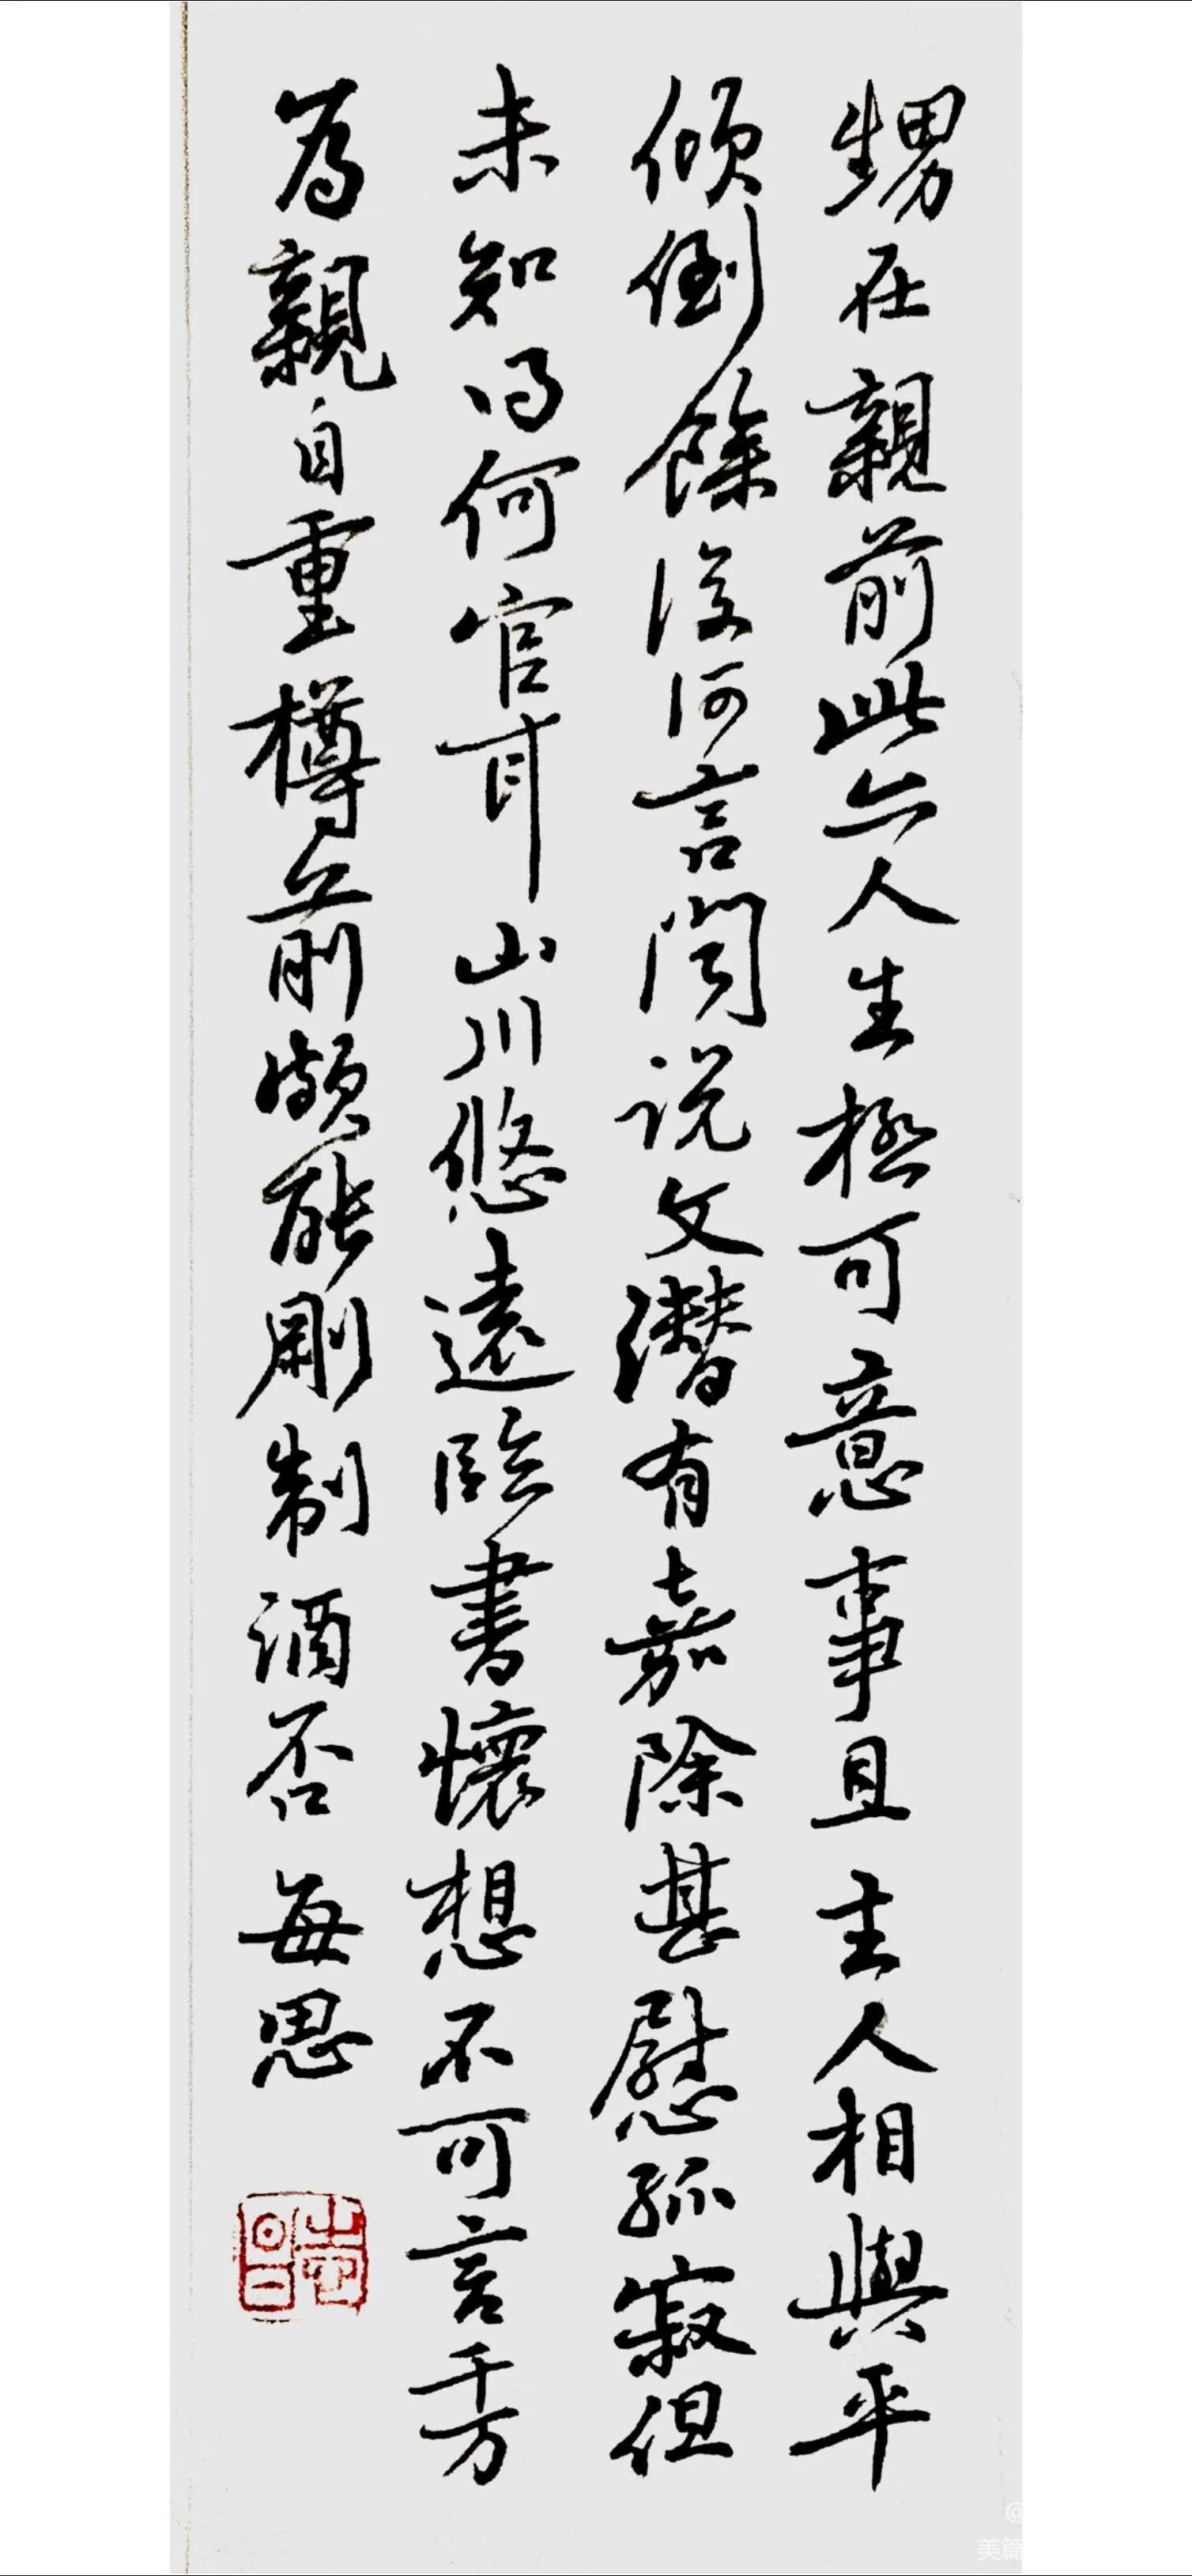 甥在親前此亦人生極可意事且主人相與平
傾倒餘復何言聞说文潜有嘉除甚慰孤寂但
未知得何官耳山川悠遠臨書懷想不可言千万
為親自重樽前頗能剛制酒否每思
美篇